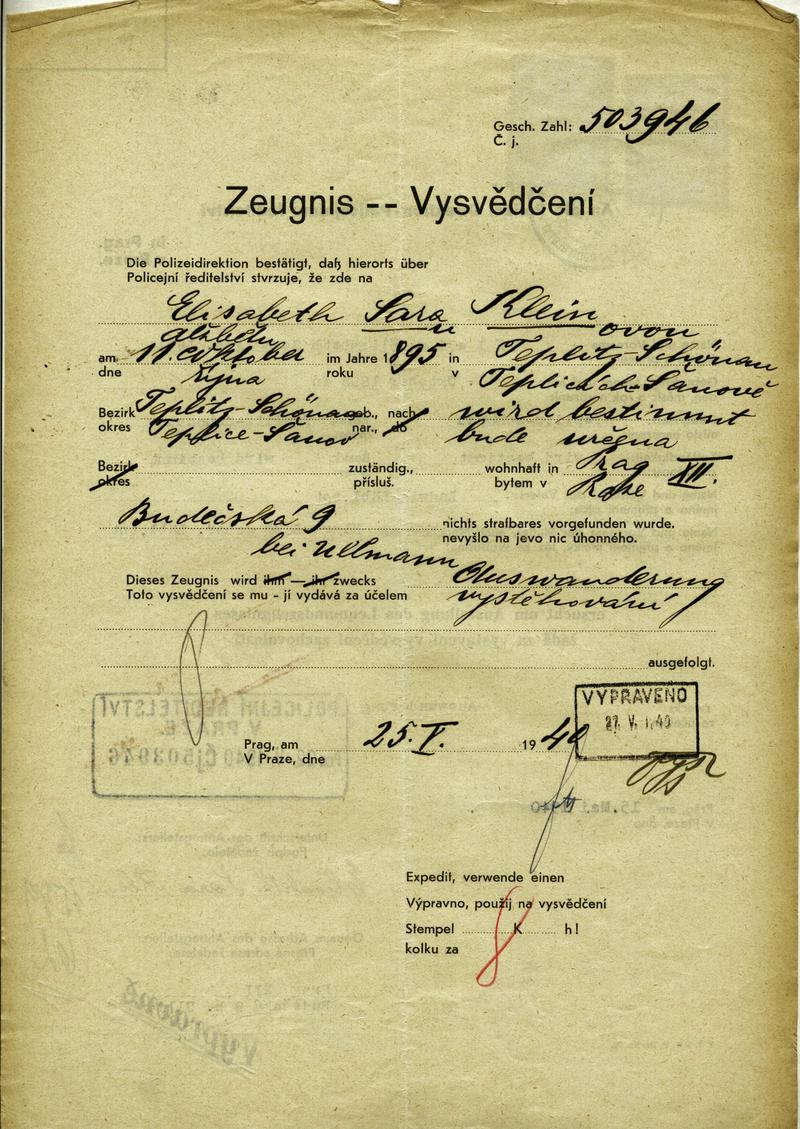 Gesch. Zahl: 503946
Č. j.
Zeugnis -- Vysvědčení
Die Polizeidirektion bestätigt, daß hierorts über
Policejní ředitelství stvrzuje, že zde na
Elisabeth Sara Klein
ovou
am 11. Oktober im Jahre 1895 in Teplitz-Schönau
dne října roku v Teplicích-Šanově
Bezirk Teplitz-Schönau geb., nach wird bestimmt
okres Teplice-Šanov nar., do bude určena
Bezirk zuständig., wohnhaft in Prag XII.
okres přísluš. bytem v Praze
Budečská 9 nichts strafbares vorgefunden wurde.
nevyšlo na jevo nic úhonného.
bei Ullmann
Dieses Zeugnis wird ihm — ihr zwecks Auswanderung
Toto vysvědčení se mu - jí vydává za účelem vystěhování
ausgefolgt.
VYPRAVENO
27. V. 1940
Prag, am 25. V. 1940
V Praze, dne
Expedit, verwende einen
Výpravno, použij na vysvědčení
Stempel 8 K h!
kolku za